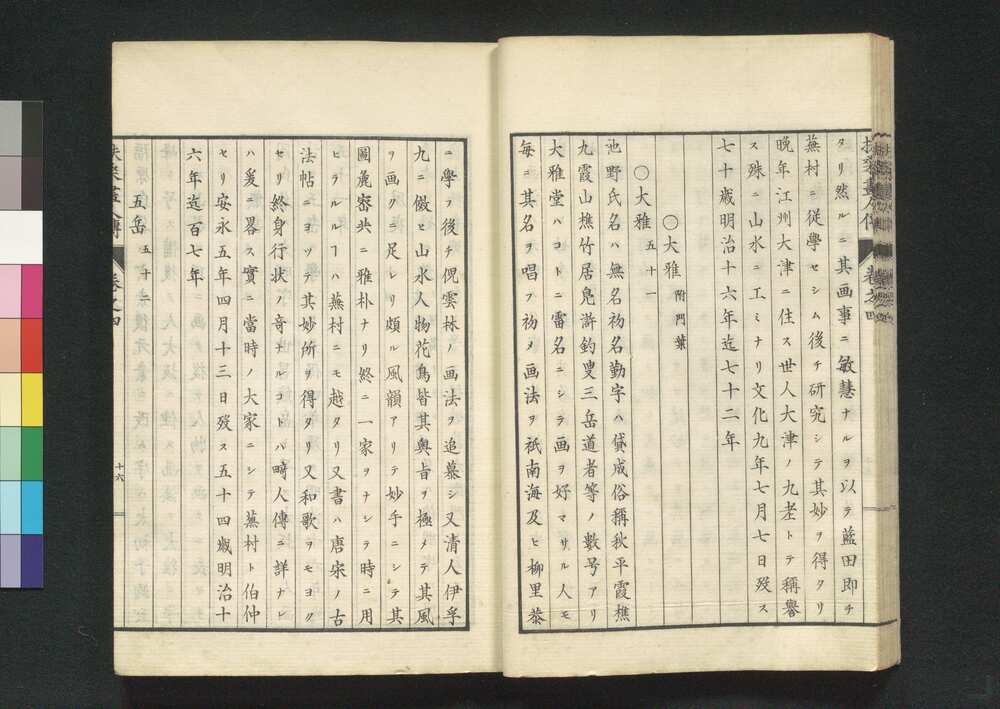 タリ然ルニ其画事ニ敏慧ナルヲ以テ藍田即チ
蕪村ニ従學セシム後チ研究シテ其妙ヲ得タリ
晩年江州大津ニ住ス世人大津ノ九老トテ稱譽
ス殊ニ山水ニ工ミナリ文化九年七月七日歿ス
七十歳明治十六年迄七十二年
〇大雅 附門葉
〇大雅 五十一
池野氏名ハ無名初名勤字ハ貸成俗稱秋平霞樵
九霞山樵竹居鳧滸釣叟三岳道者等ノ數号アリ
大雅堂ハコトニ雷名ニシテ画ヲ好マサル人モ
毎ニ其名ヲ唱フ初メ画法ヲ祇南海及ヒ柳里恭
ニ學フ後チ倪雲林ノ画法ヲ追慕シ又清人伊孚
九ニ倣ヒ山水人物花鳥皆其奥旨ヲ極メテ其風
ヲ画クニ足レリ頗ル風韻アリテ妙手ニシテ其
圖麁密共ニ雅朴ナリ終ニ一家ヲナシテ時ニ用
ヒラルルヿハ蕪村ニモ越タリ又書ハ唐宋ノ古
法帖ニヨツテ其妙所ヲ得タリ又和歌ヲモヨク
セリ終身行状ノ奇ナルコトハ畸人傳ニ詳ナレ
ハ爰ニ畧ス實ニ當時ノ大家ニシテ蕪村ト伯仲
セリ安永五年四月十三日歿ス五十四歳明治十
六年迄百七年
五岳 五十二
卷之四
十六